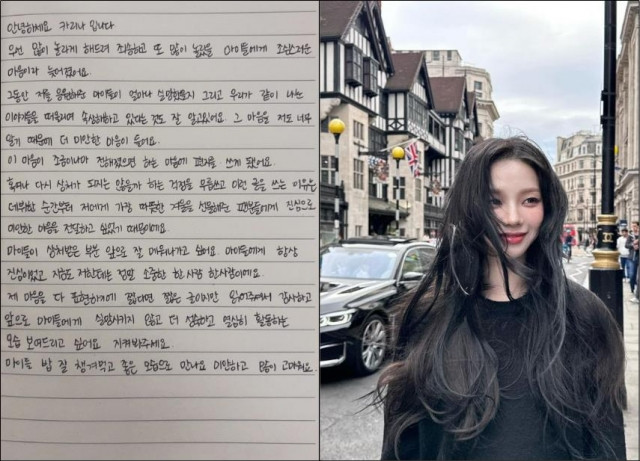 안녕하세요 카리나 입니다
우선 많이 놀라게 해드려 죄송하고 또 많이 놀랐을 마이들에게 조심스러운
마음이라 늦어졌어요.
그동안 저를 응원해준 마이들이 얼마나 실망했을지 그리고 우리가 같이 나눈
이야기들을 떠올리며 속상해하고 있다는것도 잘 알고있어요. 그 마음을 저도 너무
알기 때문에 더 미안한 마음이 들어요.
이 마음이 조금이나마 전해졌으면 하는 마음에 편지를 쓰게 됐어요.
혹여나 다시 상처가 되지는 않을까 하는 걱정을 무릅쓰고 이런 글을 쓰는 이유는
데뷔한 순간부터 저에게 가장 따뜻한 겨울을 선물해준 팬분들에게 진심으로
미안한 마음을 전달하고 싶었기 때문이에요.
마이들이 상처받은 부분 앞으로 잘 메워나가고 싶어요. 마이들에게 항상
진심이었고 지금도 저한테는 정말 소중한 한 사람 한사람이에요.
제 마음을 다 표현하기에 짧다면 짧은 글이지만 읽어주셔서 감사하고
앞으로 마이들에게 실망시키지 않고 더 성숙하고 열심히 활동하는
모습 보여드리고 싶어요 지켜봐주세요.
마이들 밥 잘 챙겨먹고 좋은 모습으로 만나요 미안하고 많이 고마워요.